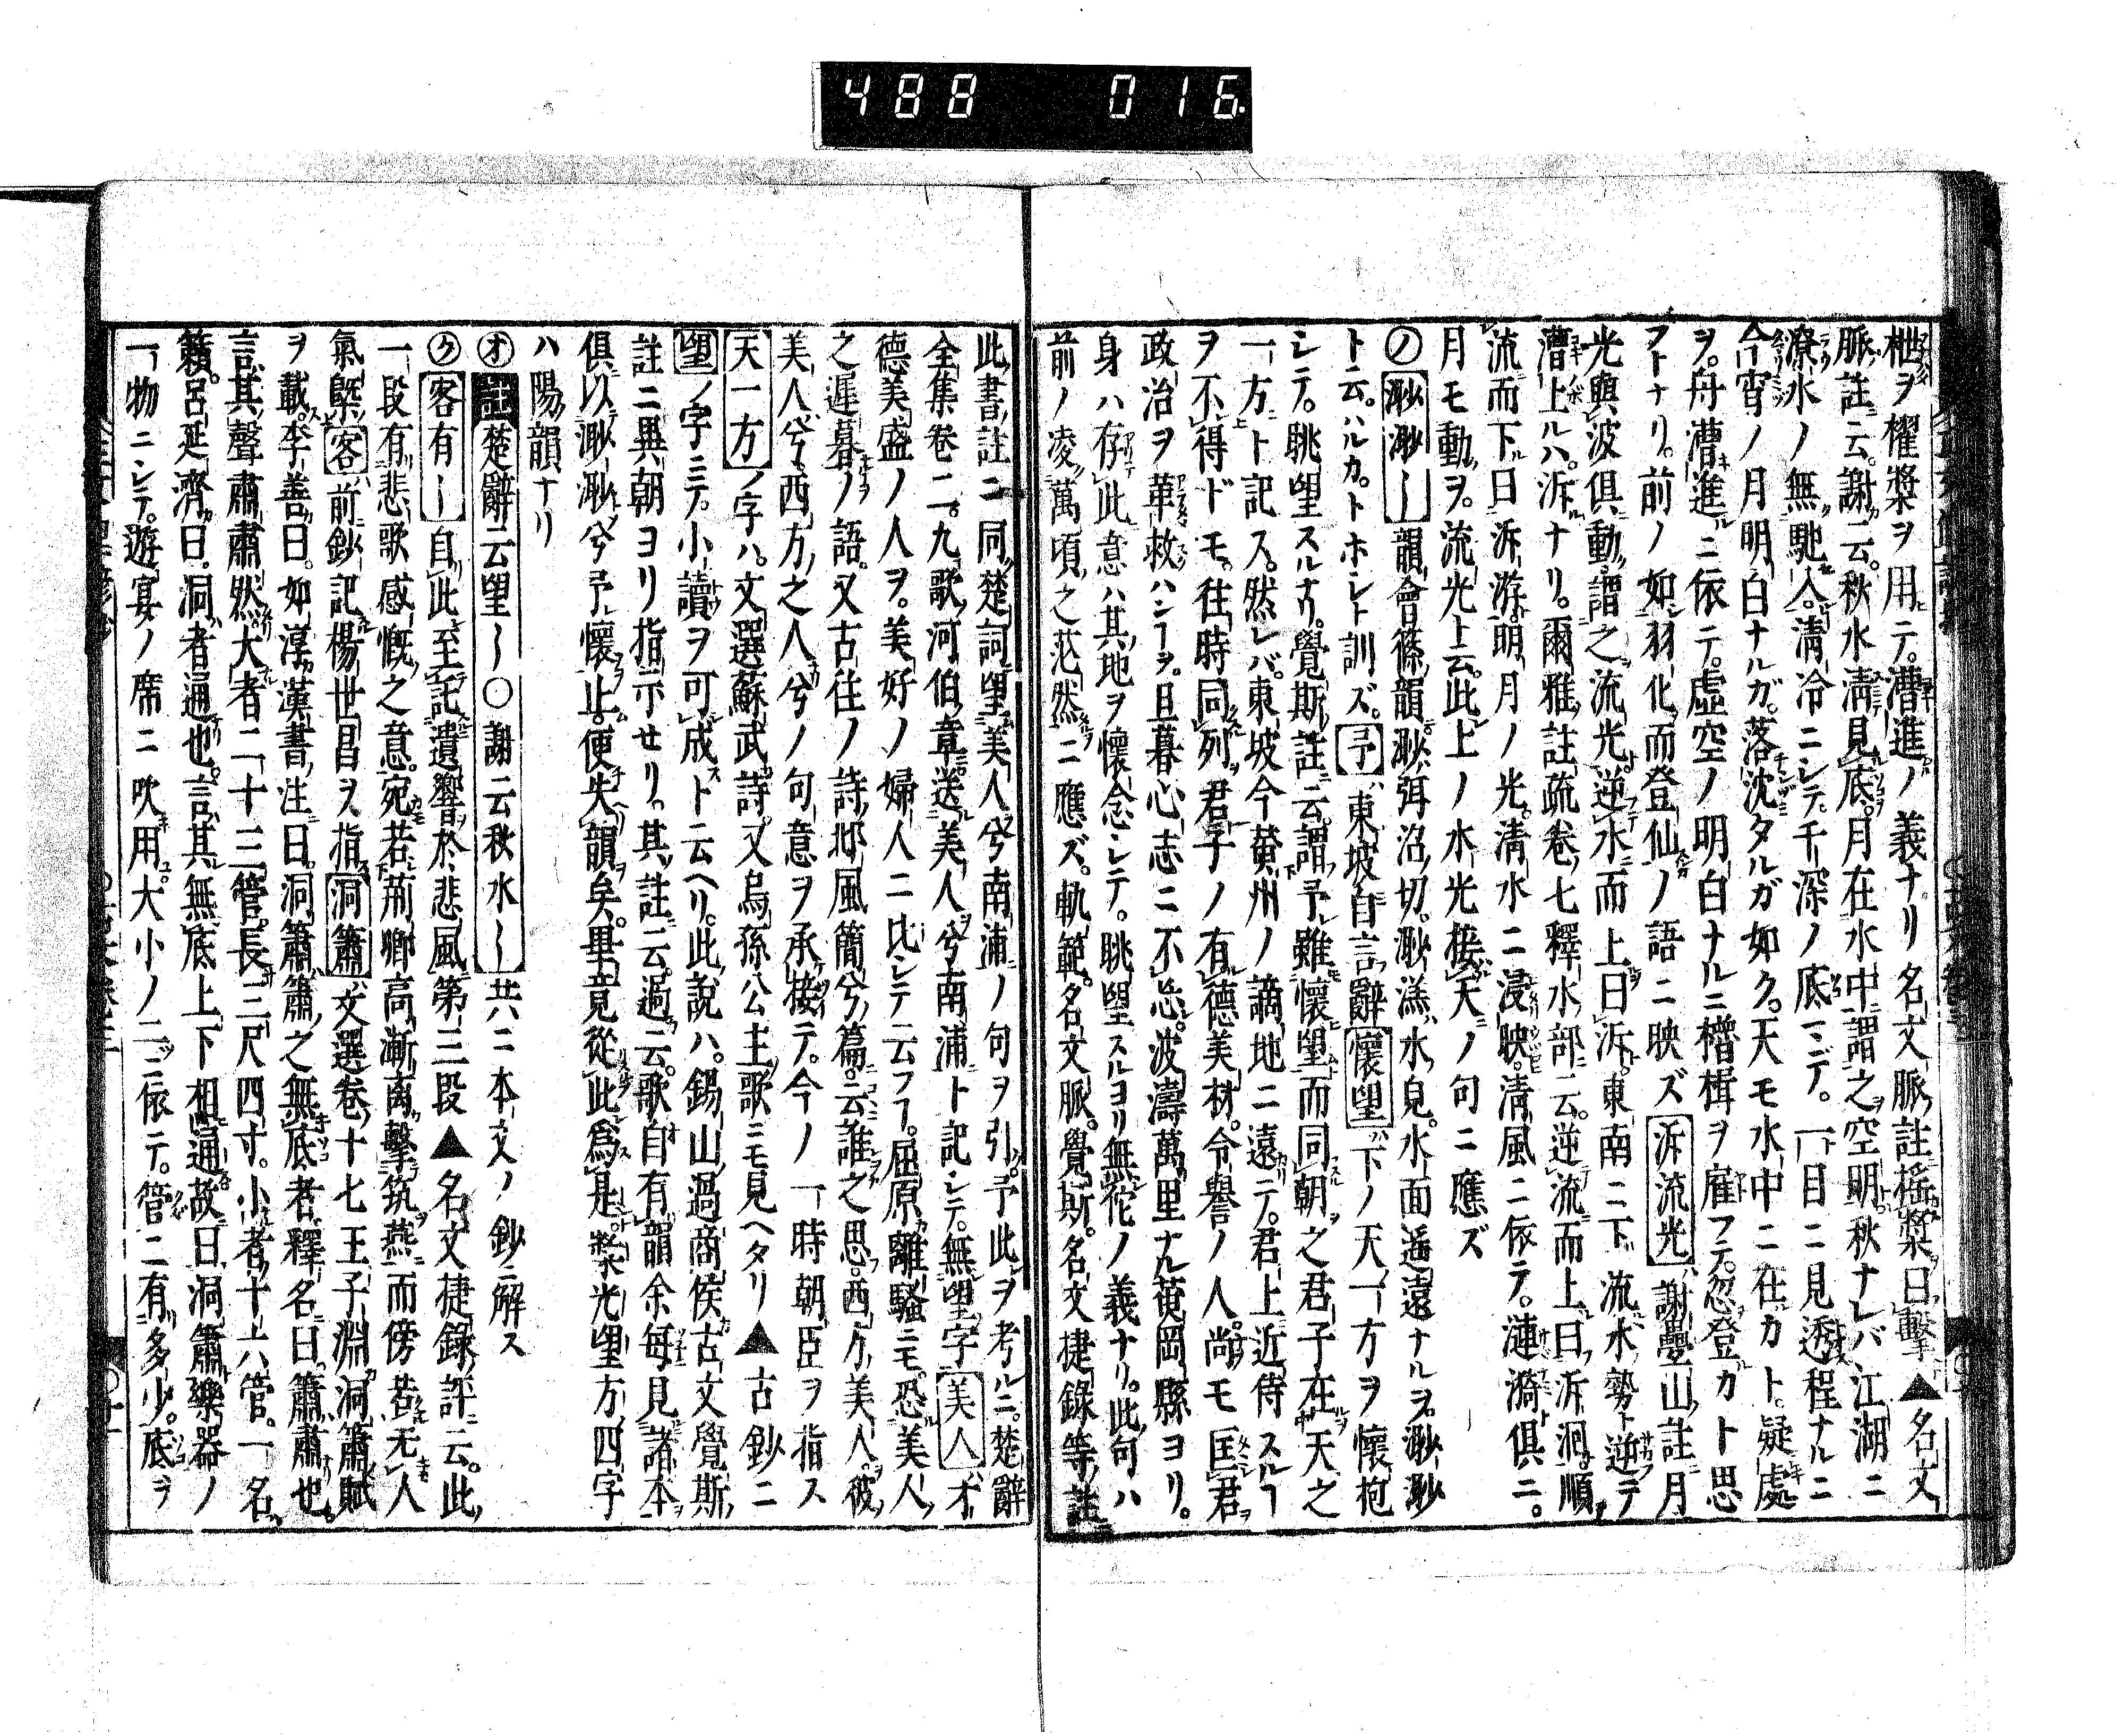 488 016
枻ヲ櫂槳ヲ用テ漕進ノ義ナリ名文脈註揺槳曰擊▲名文
脈註云謝云秋水清見底月在水中謂之空明秋ナレバ江湖ニ
潦水ノ無馳入清冷ニシテ千深ノ底マデ一目ニ見透程ナルニ
今宵ノ月明白ナルガ落沈タルガ如ク天モ水中ニ在カト疑處
ヲ舟漕進ニ依テ虚空ノ明白ナルニ櫓楫ヲ雇フテ忽登ガカト思
フトナリ前ノ如羽化而登仙ノ語ニ映ズ泝流光謝疊山註月
光與波俱動謂之流光逆水而上曰泝東南ニ下流水勢ト逆テ
漕上ルハ泝ナリ爾雅註疏卷七釋水部云逆流而上曰泝洄順
流而下曰泝游明月ノ光清水ニ浸映清風ニ依テ漣漪俱ニ
月モ動ヲ流光ト云此上ノ水光接天ノ句ニ應ズ
ノ渺渺〡韻會篠韻渺弭沼切渺渺水皃水面遥遠ナルヲ渺渺
ト云ハルカトホシト訓ズ予東坡自言辭懷望下ノ天一方ヲ懷抱
シテ眺望スルナリ覺斯註云謂予雖懷望而同朝之君子在天之
一方ト記ス然レバ東坡今黄州ノ謫地ニ遠テ君上近侍スルヿ
ヲ不得ドモ往時同列君子ノ有德美材令譽ノ人尚モ匡君
政治ヲ革救ハンヿヲ旦暮心志ニ不忘波濤萬里ナル黄岡縣ヨリ
身ハ存此意ハ其地ヲ懷念シテ眺望スルヨリ無佗ノ義ナリ此句ハ
前ノ凌萬頃之茫然ニ應ズ軌範名文脈覺斯名文捷錄等註
此書註ニ同楚詞望美人兮南浦ノ句ヲ引予此ヲ考ルニ楚辭
全集卷二九歌河伯章送美人兮南浦ト記シテ無望字美人才
德美盛ノ人ヲ美好ノ婦人ニ比シテ云フヿ屈原離騷ニモ恐美人
之遲暮ノ語又古往ノ詩邶風簡兮篇云誰之思西方美人彼
美人兮西方之人兮ノ句意ヲ承接テ今ノ一時朝臣ヲ指ス
天一方ノ字ハ文選蘇武詩又烏孫公主歌ニモ見ヘタリ▲古鈔ニ
望ノ字ニテ小讀ヲ可成ト云ヘリ此説ハ錫山過商侯古文覺斯
註ニ異朝ヨリ指示セリ其註云過云歌自有韻余毎見諸本
俱以渺渺兮予懷止便失韻矣畢竟從此爲是槳光望方四字
ハ陽韻ナリ
オ註楚辭云望〡○謝云秋水〡共ニ本文ノ鈔ニ解ス
ク客有〡自此至託遺響於悲風第三段▲名文捷錄評云此
一段有悲歌感慨之意宛若荊卿高漸离擊筑燕而傍若无人
氣槩客前鈔記楊世昌ヲ指洞簫文選卷十七王子淵洞簫賦
ヲ載李善曰如淳漢書注曰洞簫簫之無底者釋名曰簫肅也
言其聲肅肅然大者二十三管長三尺四寸小者十六管一名
籟呂延濟曰洞者通也言其無底上下相通故曰洞簫樂器ノ
一物ニシテ遊宴ノ席ニ吹用大小ノ二ニ依テ管ニ有多少底ヲ